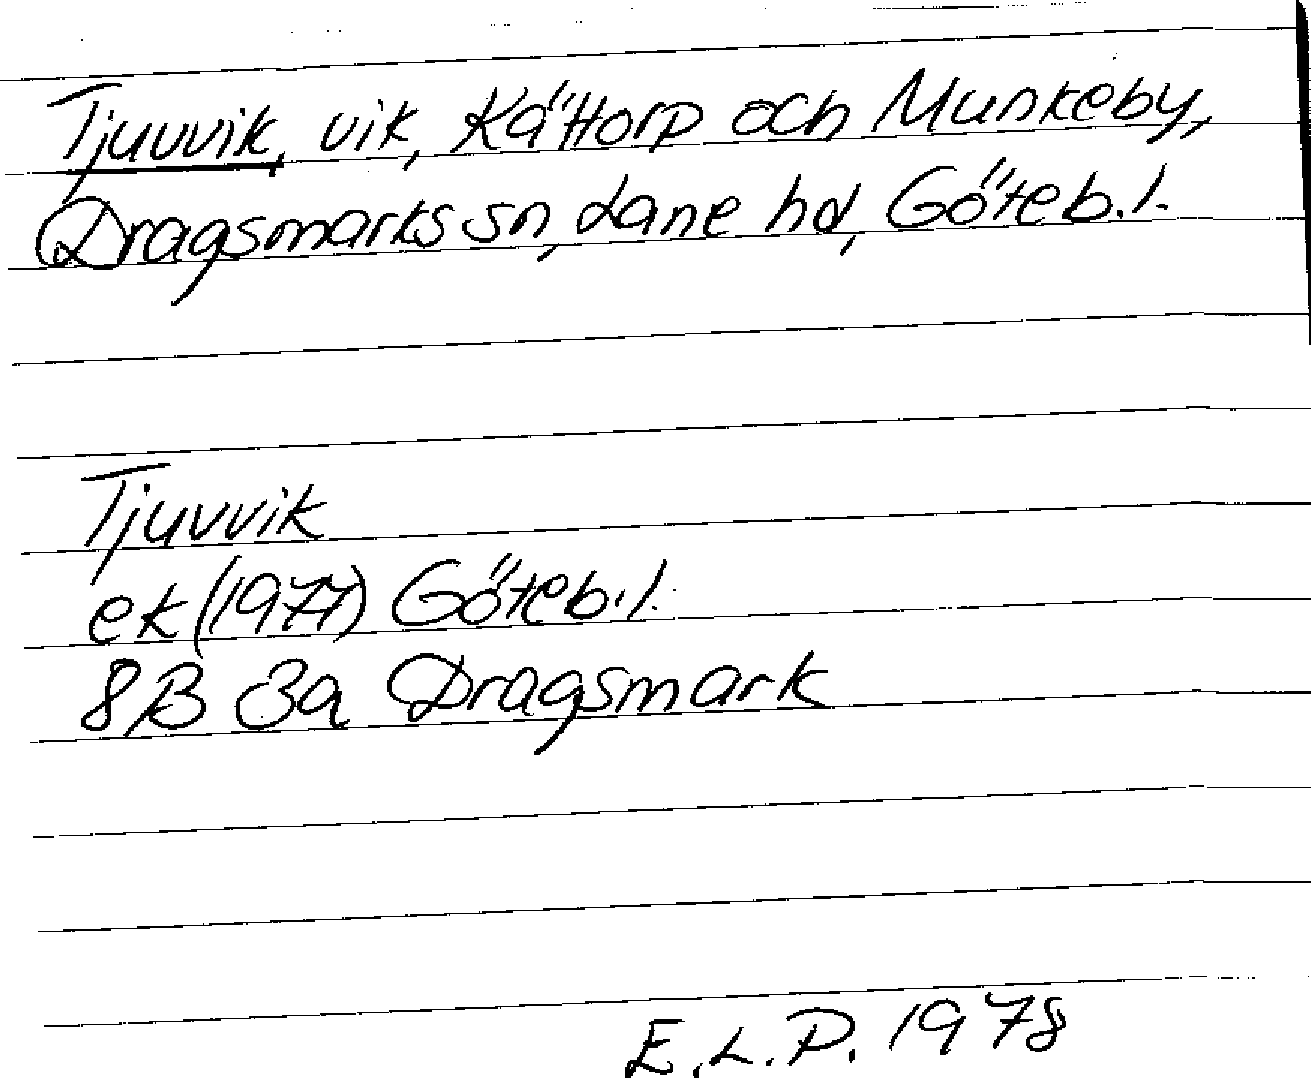 Tjuvvik, vik, Kättorp och Munkeby,
Dragsmarks sn, Lane hd, Göteb. l.
Tjuvvik
ek (1977) Göteb. l.
8B 3a Dragsmark
E.L.P. 1978